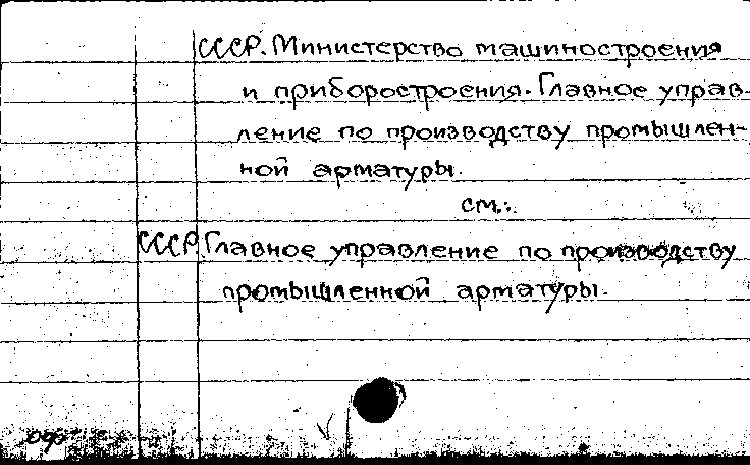 СССР. Министерство машиностроения
и приборостроения. Главное управ-
ление по производству промышлен-
ной арматуры.
см.:
СССР. Главное управление по производству
промышленной арматуры.